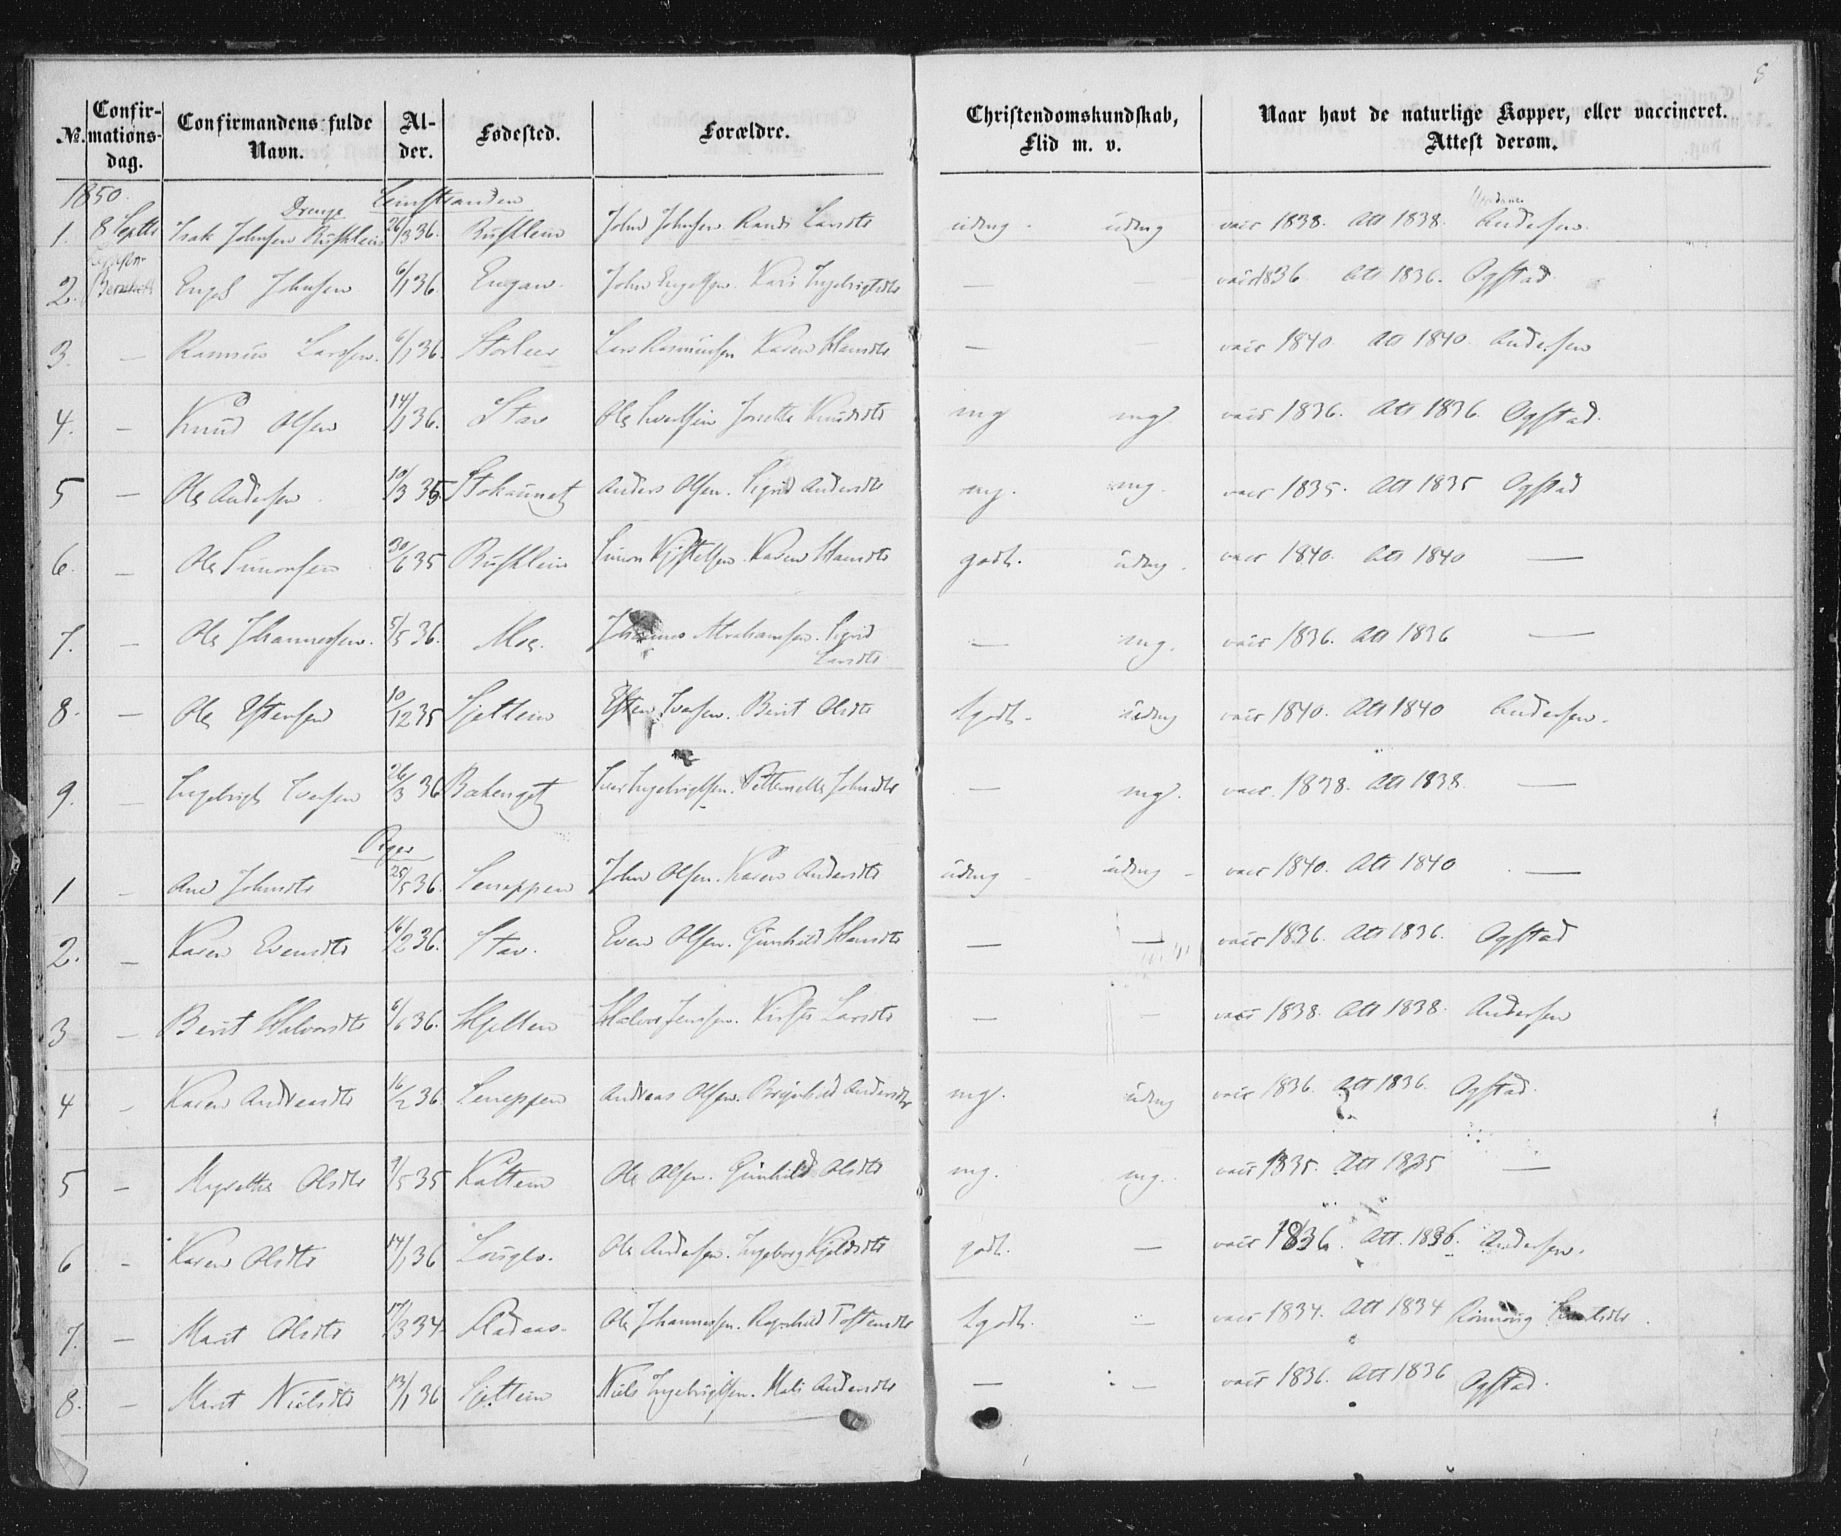 8
No. Confirmationsdag. Confirmandens fulde Navn. Alder. Fødested. Forældre. Christendomskundskab, Flid m. v. Naar havt de naturlige Kopper, eller vaccineret. Attest derom.
1850. Leinstranden
Drenge
1. 8 Septbr Isak Johnsen 36. John Johnsen Randi Larsdtr udmg. udmg vacc 1838. Att 1838. Andersen.
2. Engel Johnsen 6/1 36. Engan. John Engelsen. Kari Ingebrigtsdtr — — vacc 1836. Att 1836. Ogstad
3. — Rasmus Larsen. 6/1 36. Storler Lars Rasmussen Karen Hansdtr — — vacc 1840. Att 1840. Andersen
4. — Knud Olsen 14/1 36. Stav Ole Knudsdtr mg mg vacc 1836. Att 1836. Ogstad.
5 — Ole Andersen. 10/3 35 Anders Olsen. Sigrid Andersdtr mg. mg. vacc 1835. Att 1835 Ogstad
6. — Ole Simonsen 30/6 35 Simon Karen Hansdtr godt. udmg. vacc 1840. Att 1840 —
7. — Ole Johannessen. 5/5 36. Moe. Johannes Abrahamsen. Sigrid Larsdtr — mg. vacc 1836. Att 1836 —
8. — Ole Estensen 10/12 35 Sjettein Esten Iversen. Berit Olsdtr tgodt. udmg vacc 1840. Att 1840 Andersen.
9. — Ingebrigt Iversen 26/3 36 Iver Ingebrigtsen. Johnsdtr — mg. vacc. 1838. Att 1838. —
Piger
1 — Ane Johnsdtr 25/5 36. John Olsen. Karen Andersdtr udmg — udmg — vacc 1840. Att 1840 —
2. — Karen Evensdtr 16/2 36. Stav. Even Olsen. Gunhild Hansdtr — — vacc 1836. Att 1836. Ogstad
3 — Berit Halvorsdtr 6/6 36. Hjelten Halvor Jenssen. Larsdtr — — vacc 1838. Att 1838. Andersen
4 — Karen Andreasdtr 16/2 36. Andreas Olsen. Andersdtr mg. udmg vacc 1836. Att 1836. Ogstad.
5 — Olsdtr 9/5 35 Kattem Ole Olsen. Gunhild Olsdtr mg. mg. vacc 1835. Att 1835 —
6 — Karen Olsdtr 14/1 36 Ole Andersen. Ingeborg godt. — vacc 1836. Att. 1836. Andersen.
7. — Marit Olsdtr 17/3 34 Ole Johannessen. Ragnhild Tostensdtr tgodt. — vacc 1834. Att 1834
8. — Marit Nielsdtr 13/1 36 Sjettein Niels Ingebrigtsen. Mali Andersdtr — — vacc 1836. Att 1836 Ogstad.